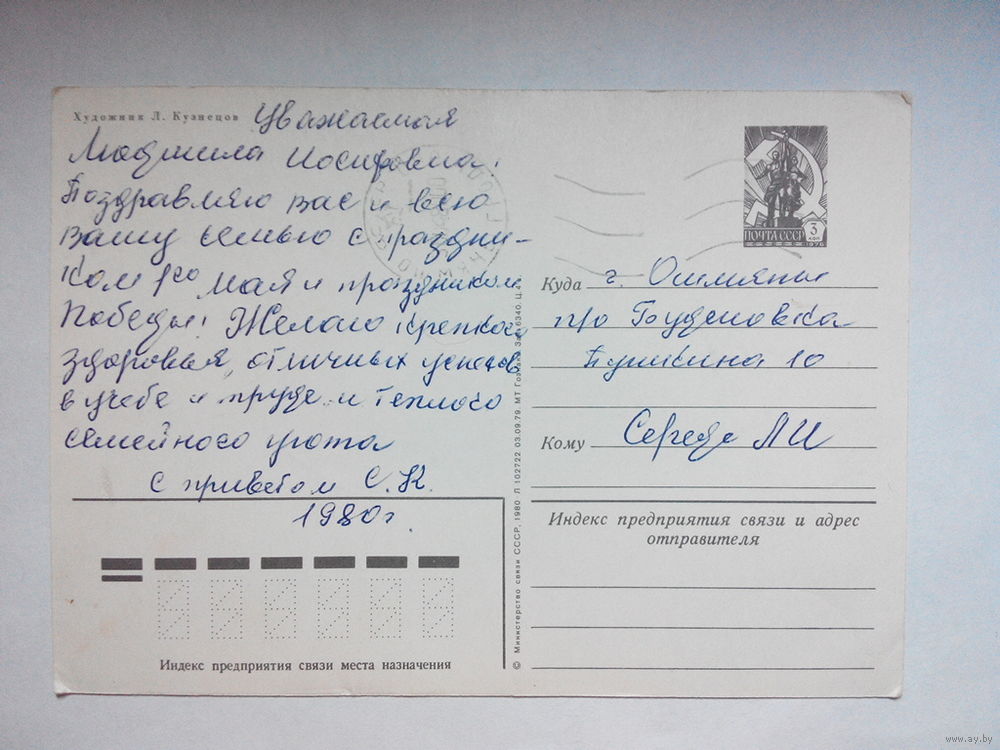 Художник Л. Кузнецов
Уважаемая
Людмила Иосифовна!
Поздравляю Вас и всю
Вашу семью с праздни-
ком 1го Мая и праздником
Победы! Желаю крепкого
здоровья, отличных успехов
в учебе и труде и теплого
семейного уюта
С приветом С. К.
1980 г.
ПОЧТА СССР
3 коп
1976
Куда г. Ошмяны
п/о Буденовка
Пушкина 10
Кому Середе Л И
Индекс предприятия связи и адрес
отправителя
Индекс предприятия связи места назначения
© Министерство связи СССР, 1980 Л 102722 03.09.79. МТ Гознака. З. 6340. Ц. 4 к.
www.ay.by